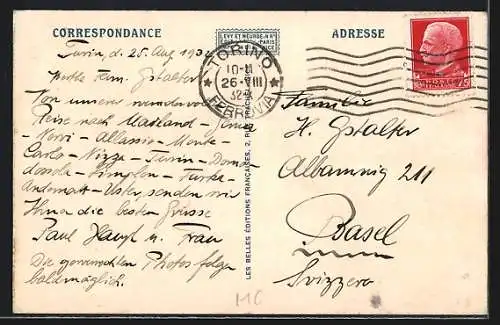 CORRESPONDANCE
LEVY ET NEURDEIN RÉUNIS
PARIS
ADRESSE
Turin, d. 25. Aug. 193
Werthe Fam. Gstalter
Von unserer wundervollen
Reise nach Mailand – Genua
– Nervi – Allassio – Monte-
Carlo – Nizza – Turin – Domo-
dossola – Simplon – Furka –
Andermatt – Uster, senden wir
Ihnen die besten Grüsse
Paul Haupt u. Frau
Die gewünschten Photos folgen
baldmöglich.
TORINO
10-11
26·VIII
32
FERROVIA
LES BELLES ÉDITIONS FRANÇAISES, 2, RUE
75
Familie
H. Gstalter
211
Basel
Svizzera
MC